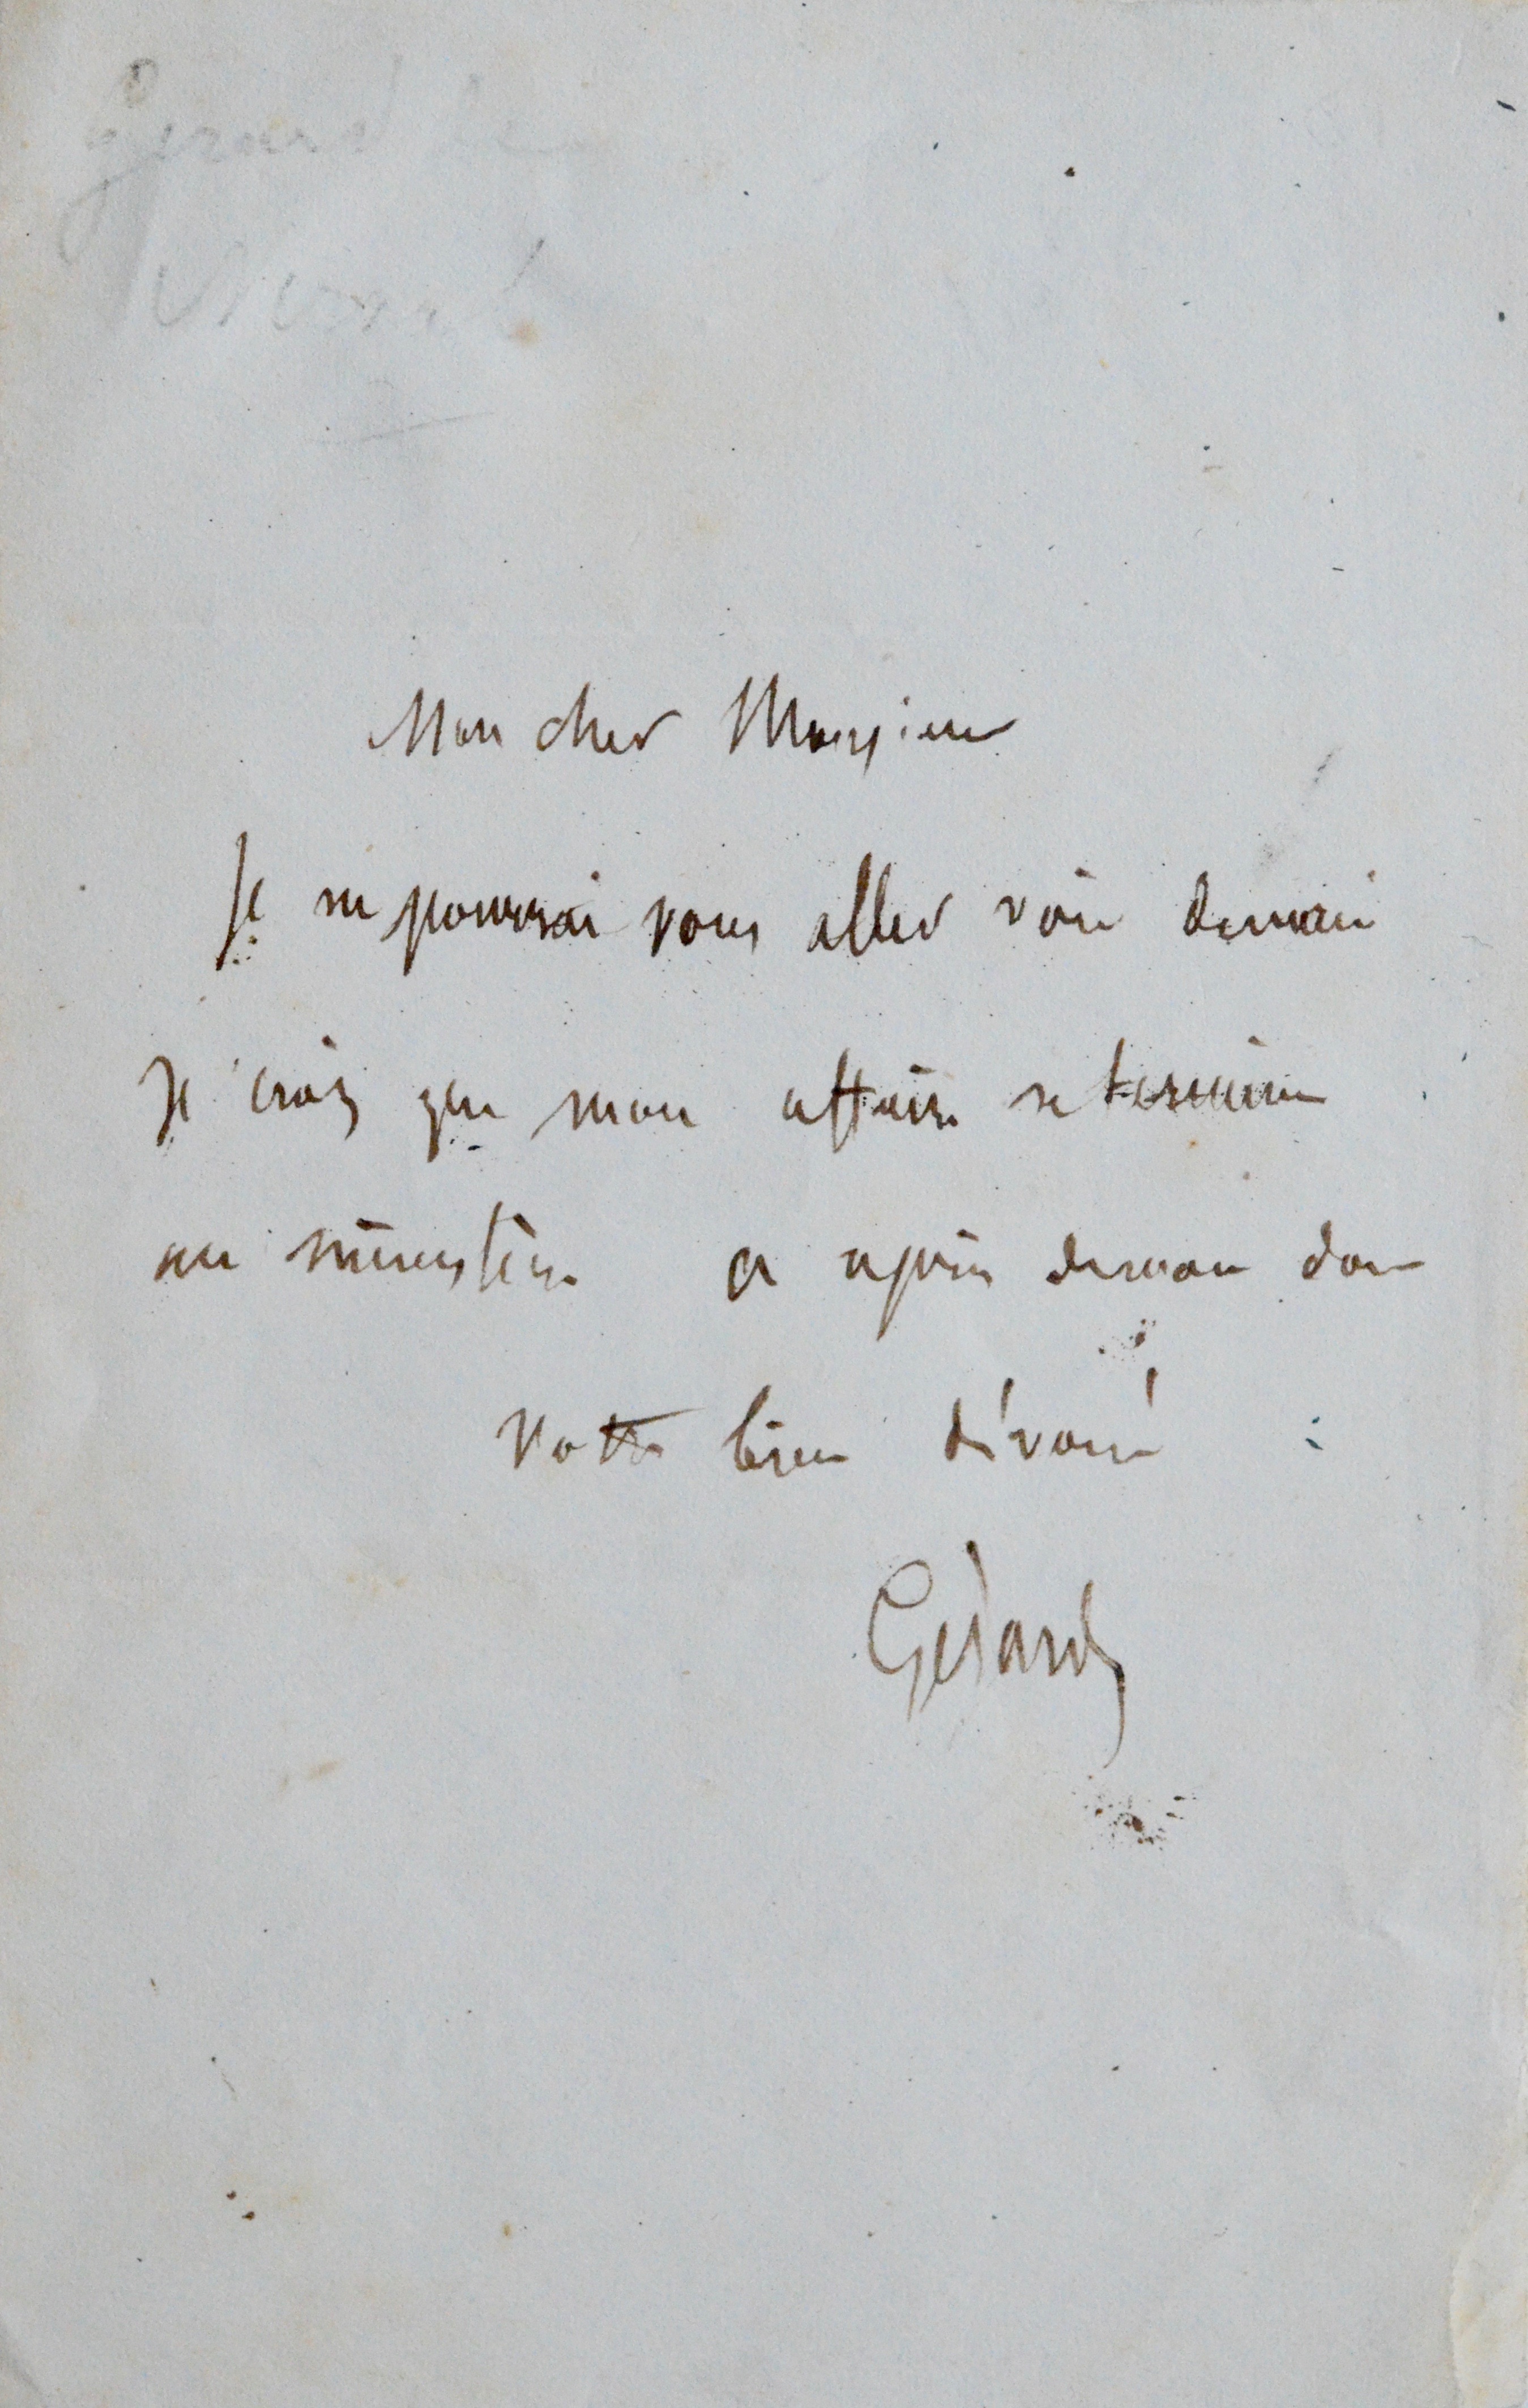 Gérard de
Nerval
Mon cher Monsieur
Je ne pourrai vous aller voir demain
Je crois que mon affaire se termine
au ministère à après demain donc
votre bien dévoué
Gérard